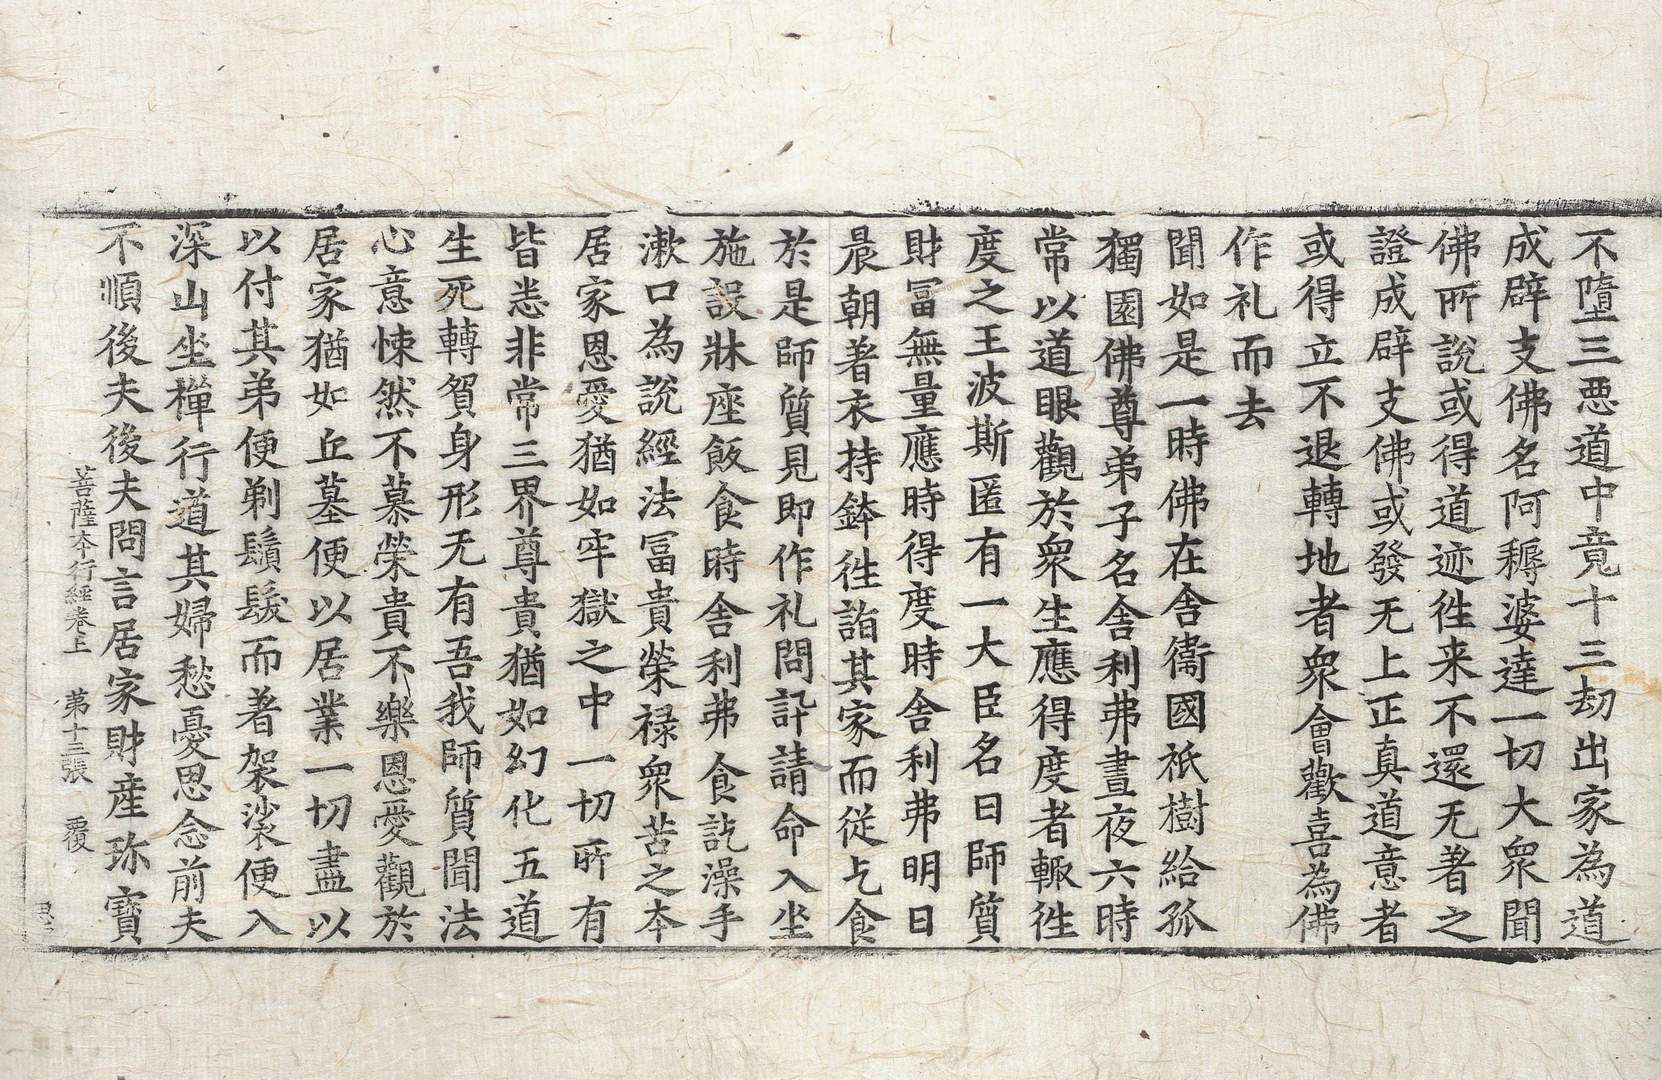 不墮三悪道中竟十三劫出家為道
成辟支佛名阿耨婆達一切大衆聞
佛所說或得道迹往来不還无著之
證成辟支佛或發无上正真道意者
或得立不退轉地者衆會歡喜為佛
作礼而去
聞如是一時佛在舍衞國祇樹給孤
獨園佛尊弟子名舍利弗晝夜六時
常以道眼觀於衆生應得度者輙往
度之王波斯匿有一大臣名曰師質
財冨無量應時得度時舍利弗明日
晨朝著衣持鉢往詣其家而従乞食
於是師質見即作礼問訊請命入坐
施設牀座飯食時舍利弗食訖澡手
漱口為説經法冨貴榮禄衆苦之本
居家恩愛猶如牢獄之中一切所有
皆悉非常三界尊貴猶如幻化五道
生死轉貿身形无有吾我師質聞法
心意悚然不慕榮貴不樂恩愛觀於
居家猶如丘墓便以居業一切盡以
以付其弟便剃鬚髮而著袈裟便入
深山坐禪行道其婦愁憂思念前夫
不順後夫後夫問言居家財産珎寳
菩薩本行經卷上　第十三張　覆